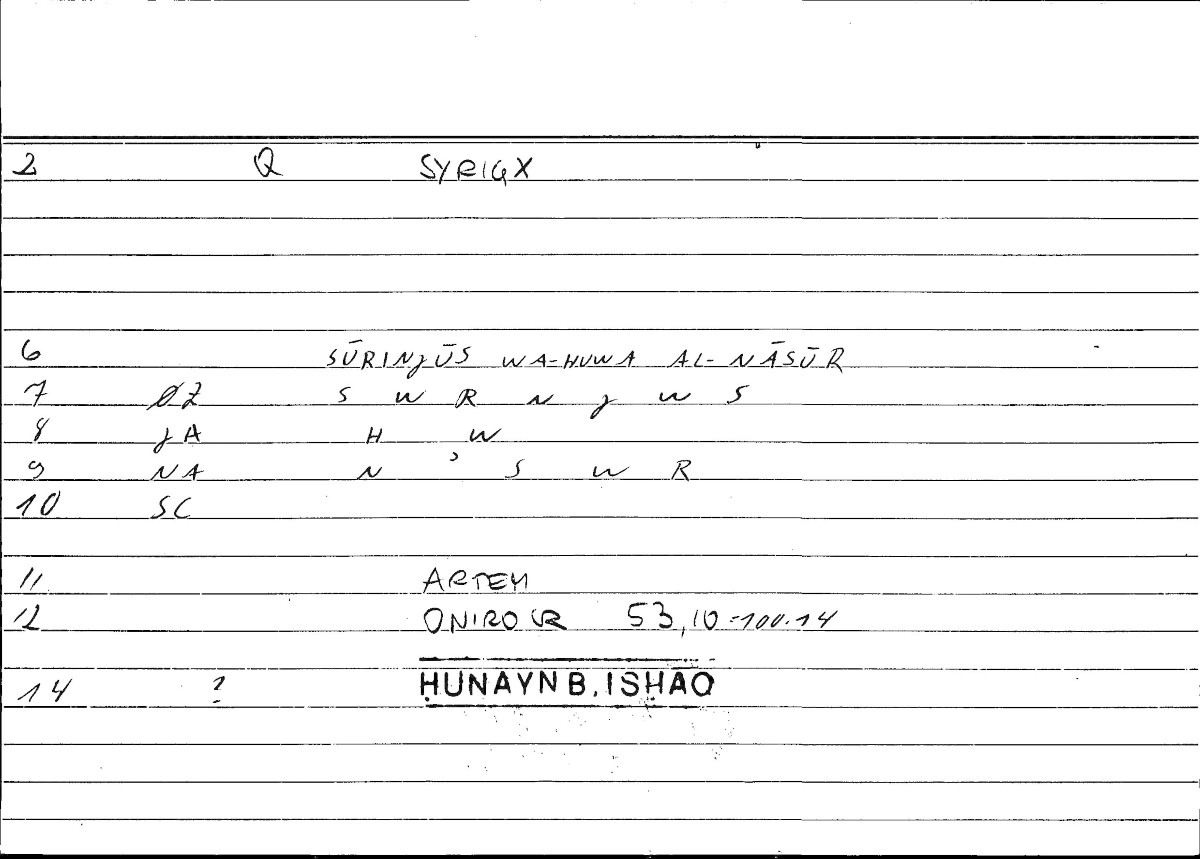 2 Q SYRIGX
6 SŪRINJŪS WA-HUWA AL-NĀSŪR
7 ØZ S W R N J W S
8 JA H W
9 NA N ʾ S W R
10 SC
11 ARTEM
12 ONIROCR 53,10-100.14
14 ? ḤUNAYN B. ISḤĀQ